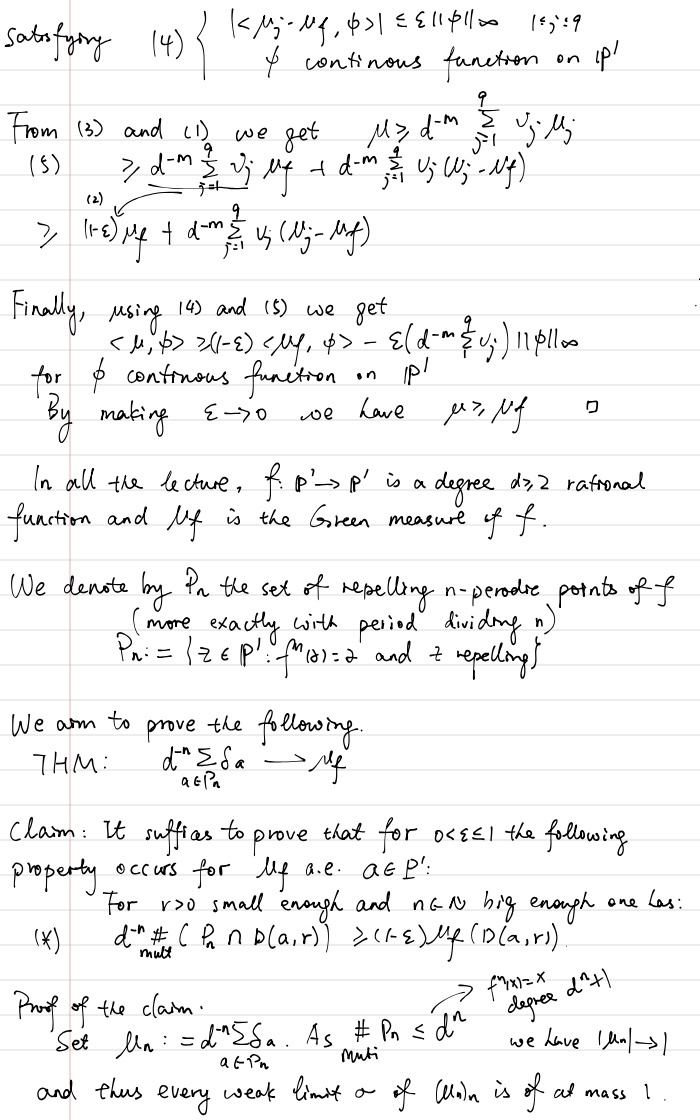 Satisfying (4) { |<μ_j - μ_f, ϕ>| ≤ ε||ϕ||_∞ 1≤j≤q
ϕ continous function on ℙ¹
From (3) and (1) we get μ ≥ d^{-m} Σ_{j=1}^{q} ν_j μ_j
(5) ≥ d^{-m} Σ_{j=1}^{q} ν_j μ_f + d^{-m} Σ_{j=1}^{q} ν_j (μ_j - μ_f)
(2)
≥ (1-ε) μ_f + d^{-m} Σ_{j=1}^{q} ν_j (μ_j - μ_f)
Finally, using (4) and (5) we get
<μ, ϕ> ≥ (1-ε) <μ_f, ϕ> - ε(d^{-m} Σ_{1}^{q} ν_j) ||ϕ||_∞
for ϕ continous function on ℙ¹
By making ε→0 we have μ ≥ μ_f □
In all the lecture, f: ℙ¹→ℙ¹ is a degree d≥2 rational
function and μ_f is the Green measure of f.
We denote by P_n the set of repelling n-perodic points of f
(more exactly with period dividing n)
P_n := {z ∈ ℙ¹ : f^n(z)=z and z repelling}
We aim to prove the following.
THM: d^{-n} Σ_{a∈P_n} δ_a → μ_f
Claim: It suffies to prove that for 0<ε≤1 the following
property occurs for μ_f a.e. a∈ℙ¹:
For r>0 small enough and n∈ℕ big enough one has:
(*) d^{-n} #_{mult} (P_n ∩ D(a,r)) ≥ (1-ε) μ_f (D(a,r))
Proof of the claim. f^n(x)=x
degree d^n+1
Set μ_n := d^{-n} Σ_{a∈P_n} δ_a. As #_{multi} P_n ≤ d^n we have |μ_n|→1
and thus every weak limit σ of (μ_n)_n is of at mass 1.